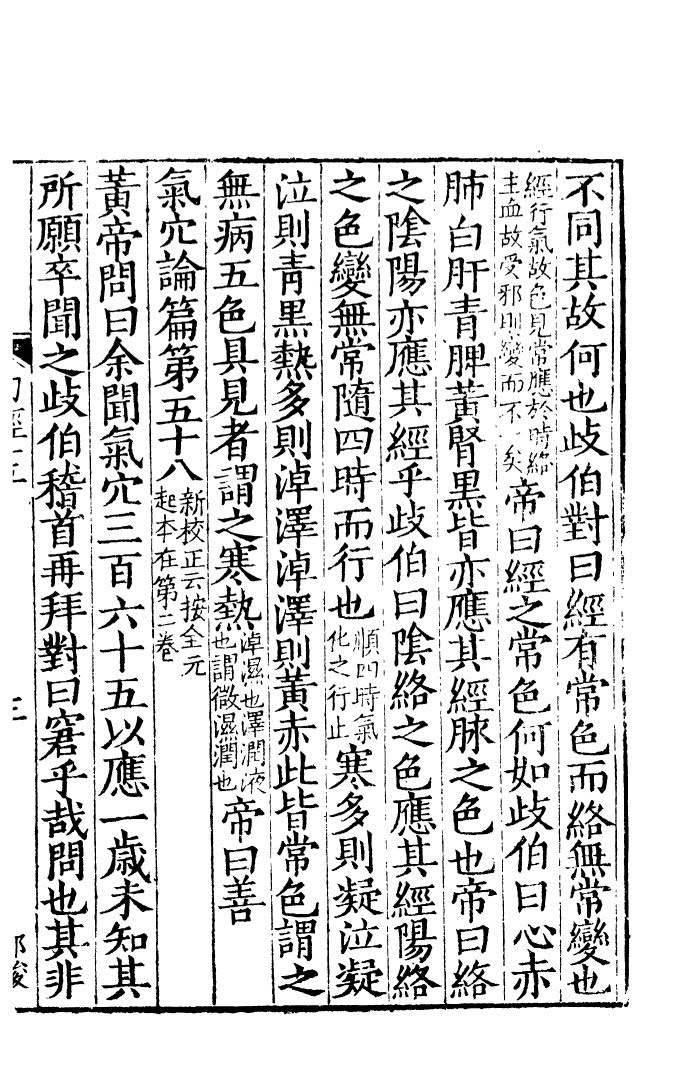 不同其故何也歧伯對曰經有常色而絡無常變也
經行氣故色見常應於時絡
主血故受邪則變而不矣帝曰經之常色何如歧伯曰心赤
肺白肝青脾黃腎黑皆亦應其經脉之色也帝曰絡
之陰陽亦應其經乎歧伯曰陰絡之色應其經陽絡
之色變無常隨四時而行也順四時氣
化之行止寒多則凝泣凝
泣則青黑熱多則淖澤淖澤則黃赤此皆常色謂之
無病五色具見者謂之寒熱淖濕也澤潤液
也謂微濕潤也帝曰善
氣穴論篇第五十八新校正云按全元
起本在第二卷
黃帝問曰余聞氣穴三百六十五以應一歲未知其
所願卒聞之歧伯稽首再拜對曰窘乎哉問也其非
三